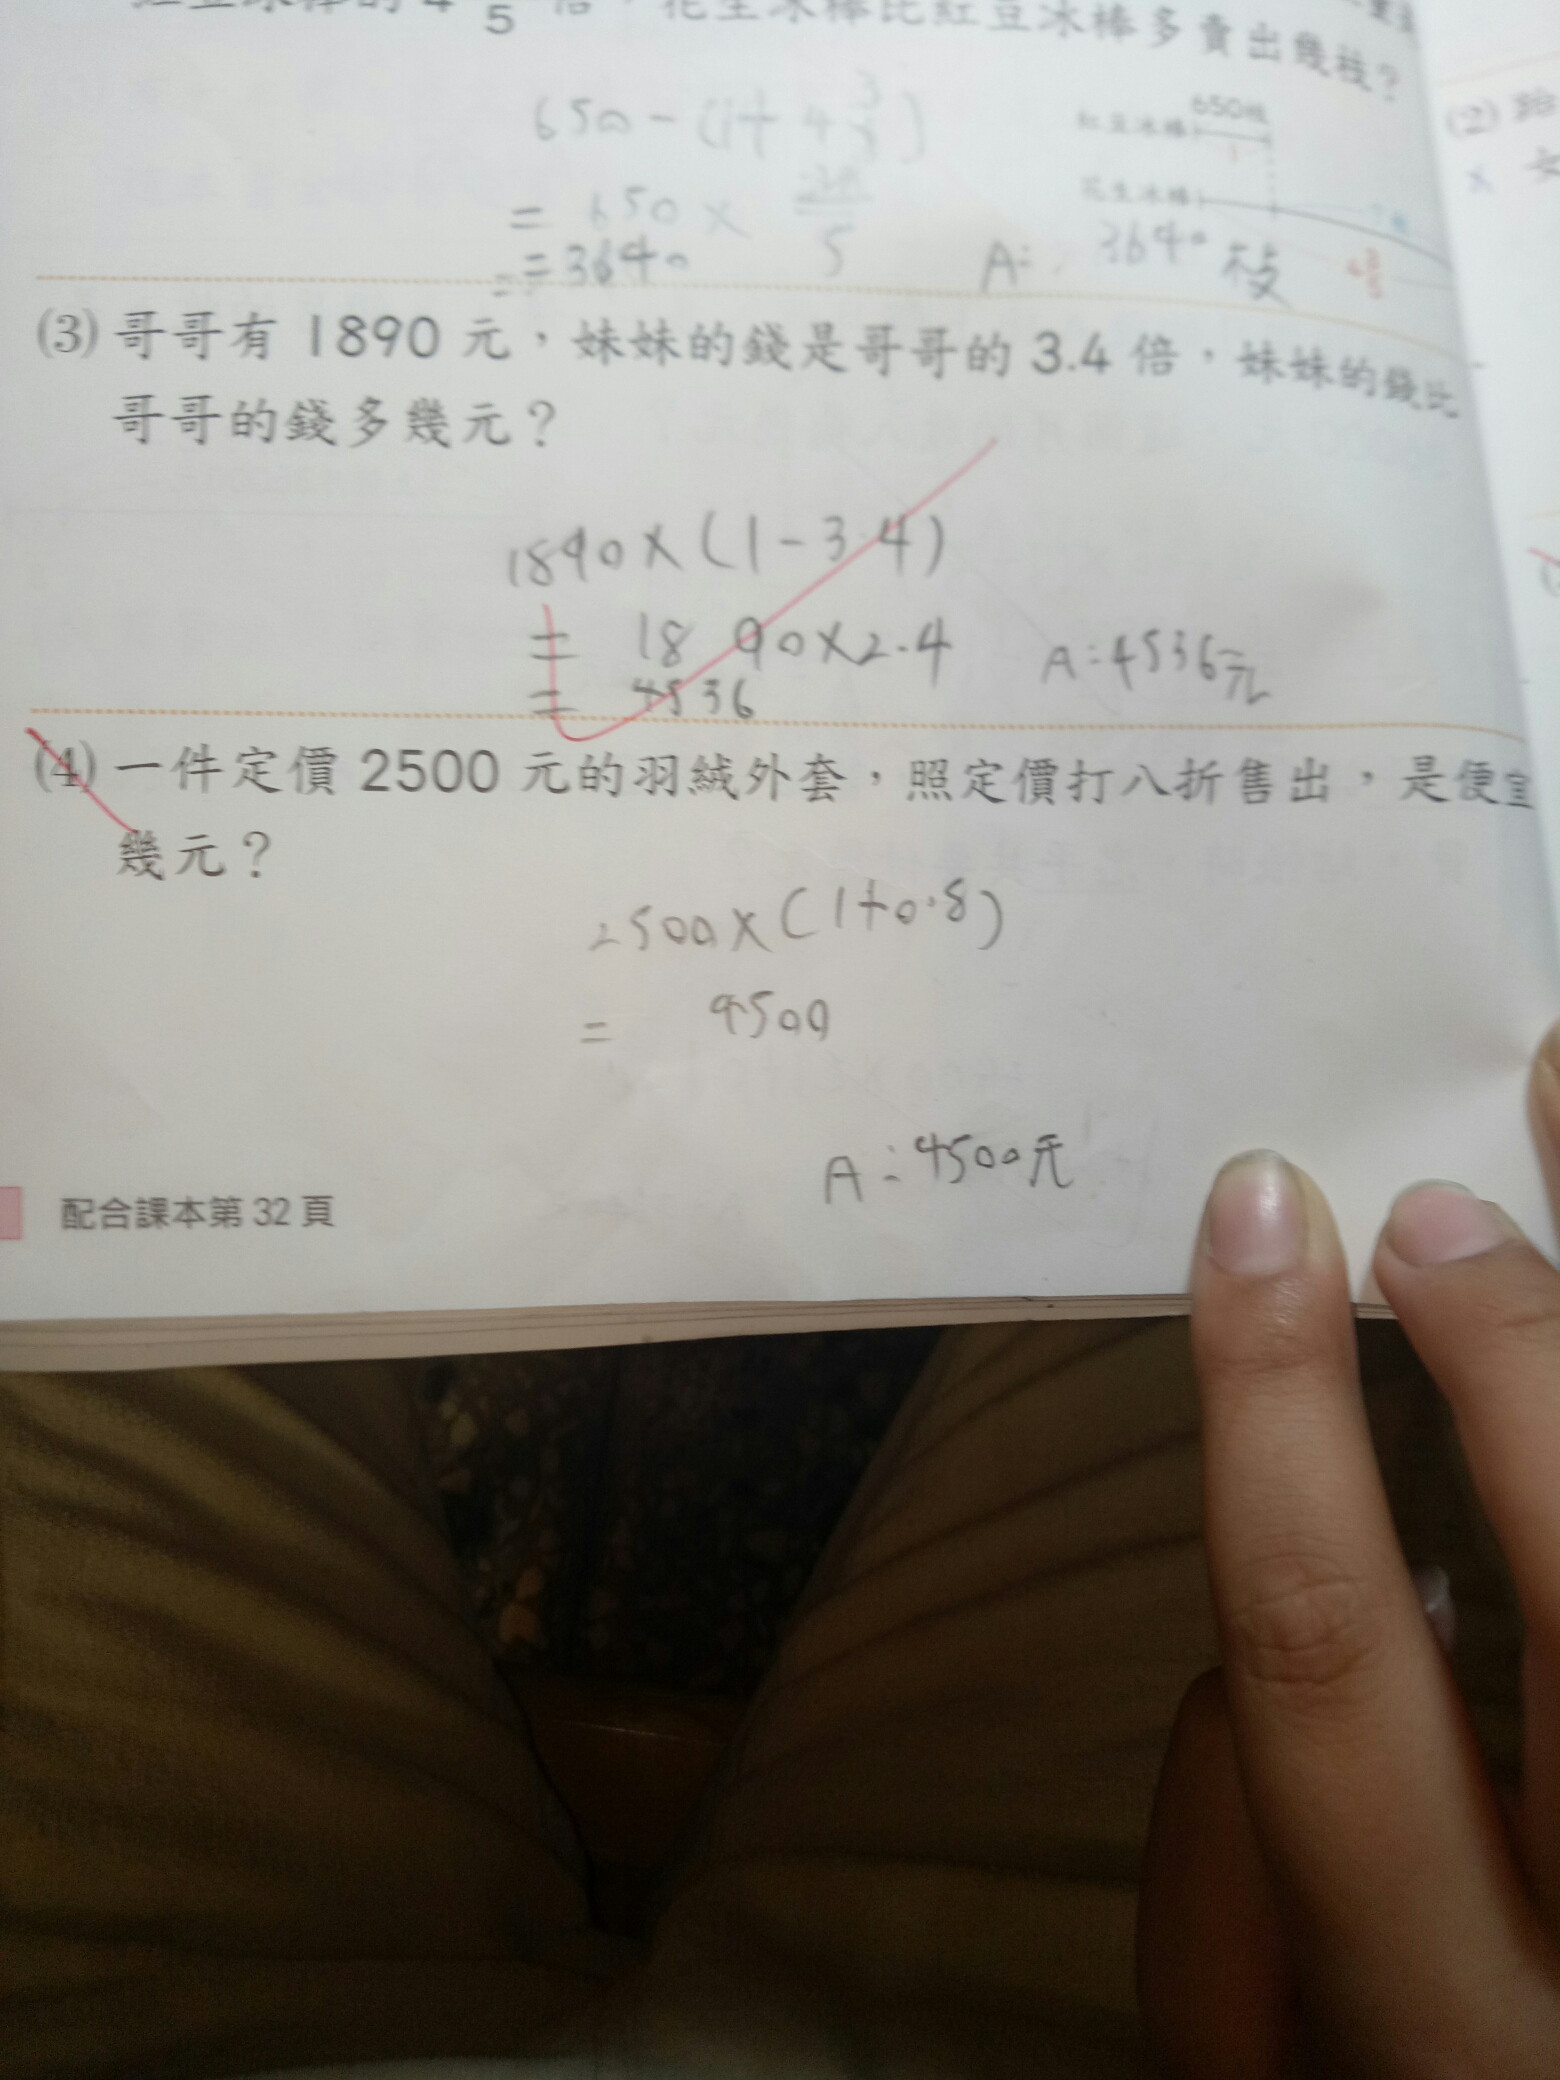 5 倍，花生冰棒比紅豆冰棒多賣出幾枝？
650枝
紅豆冰棒
花生冰棒
= 650 ×
5
= 3640
A: 3640 枝
(2)
(3) 哥哥有 1890 元，妹妹的錢是哥哥的 3.4 倍，妹妹的錢比
哥哥的錢多幾元？
1890 × (1 - 3.4)
= 1890 × 2.4
= 4536
A: 4536元
(4) 一件定價 2500 元的羽絨外套，照定價打八折售出，是便宜
幾元？
2500 × (1+0.8)
= 4500
A: 4500元
配合課本第 32 頁